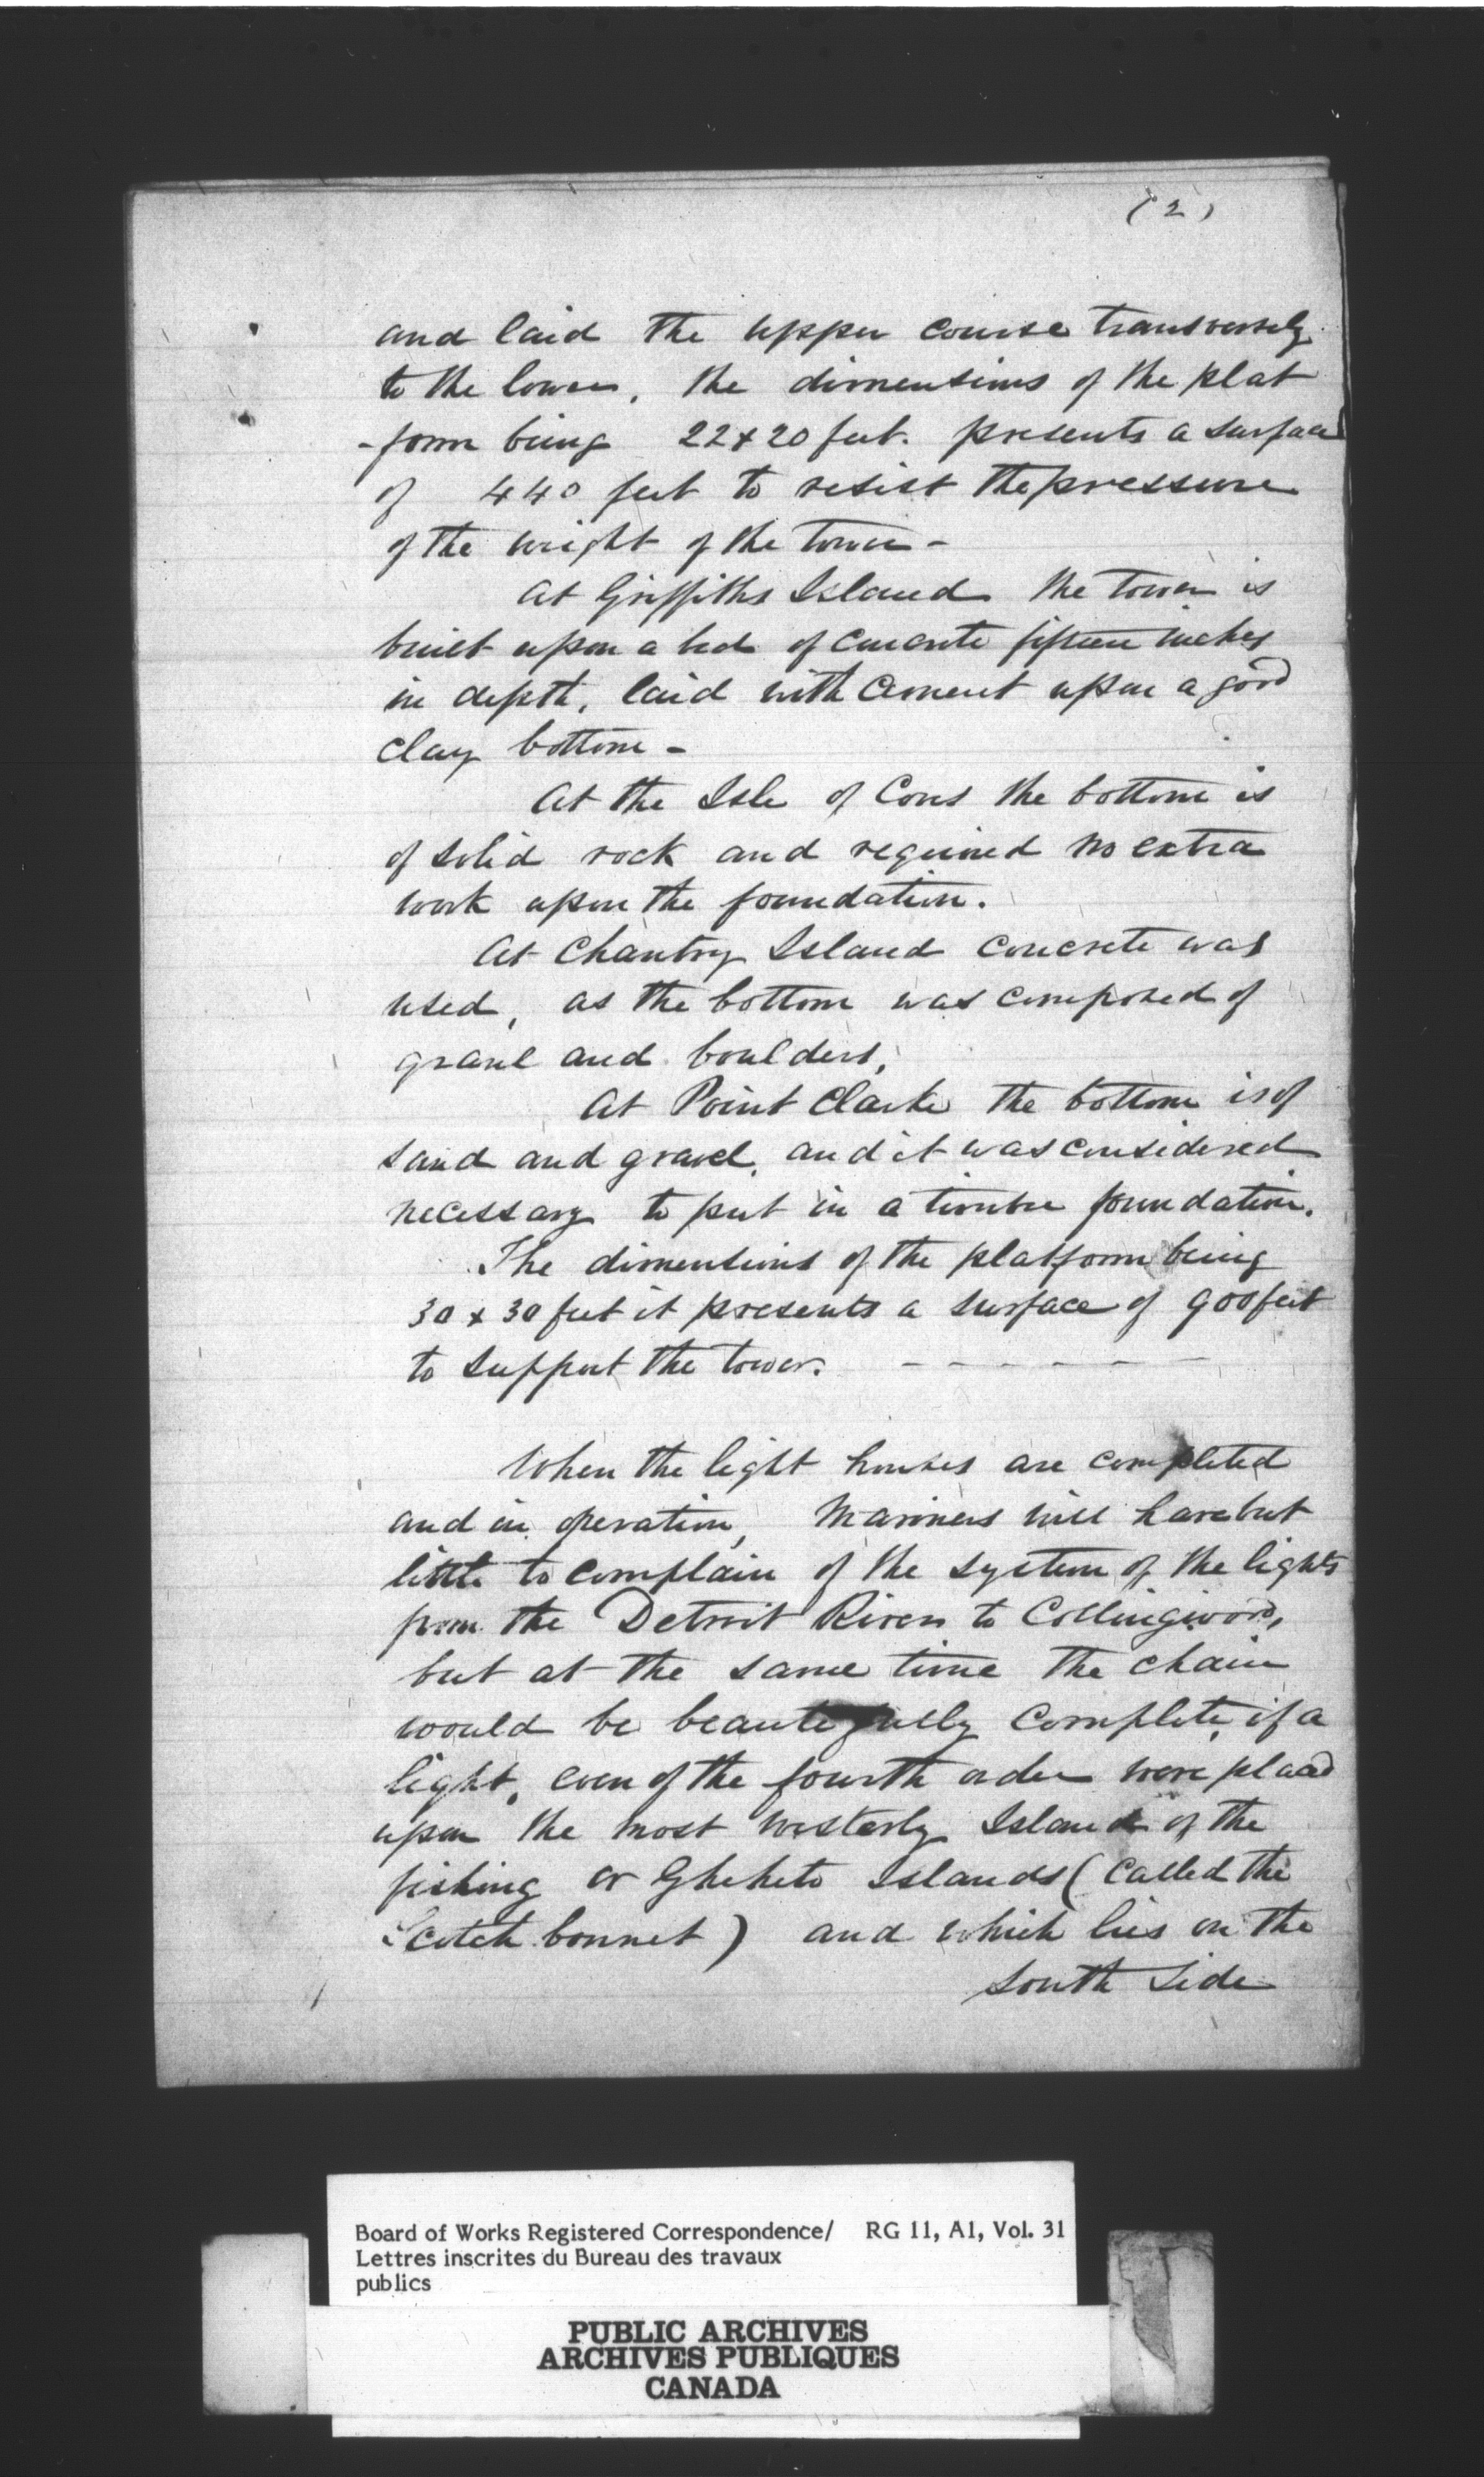 (2)
and laid the upper course transversely
to the lower, the dimensions of the plat
-form being 22 x 20 feet. presents a surface
of 440 feet to resist the pressure
of the weight of the tower -
At Griffiths Island the tower is
built upon a bed of concrete fifteen inches
in depth, laid with Cement upon a good
clay bottom -
At the Isle of Coves the bottom is
of solid rock and required no extra
work upon the foundation.
At Chantry Island concrete was
used, as the bottom was composed of
gravel and boulders,
At Point Clarke the bottom is of
sand and gravel, and it was considered
necessary to put in a timber foundation.
The dimensions of the platform being
30 x 30 feet it presents a surface of 900 feet
to support the tower. - - - - - -
When the light houses are completed
and in operation, Mariners will have but
little to complain of the system of the lights
from the Detroit River to Collingwood,
but at the same time the chain
would be beautifully complete, if a
light, even of the fourth order were placed
upon the most westerly Island of the
fishing or Islands (called the
Scotch bonnet) and which lies on the
south side
Board of Works Registered Correspondence/ RG 11, A1, Vol. 31
Lettres inscrites du Bureau des travaux
publics
PUBLIC ARCHIVES
ARCHIVES PUBLIQUES
CANADA